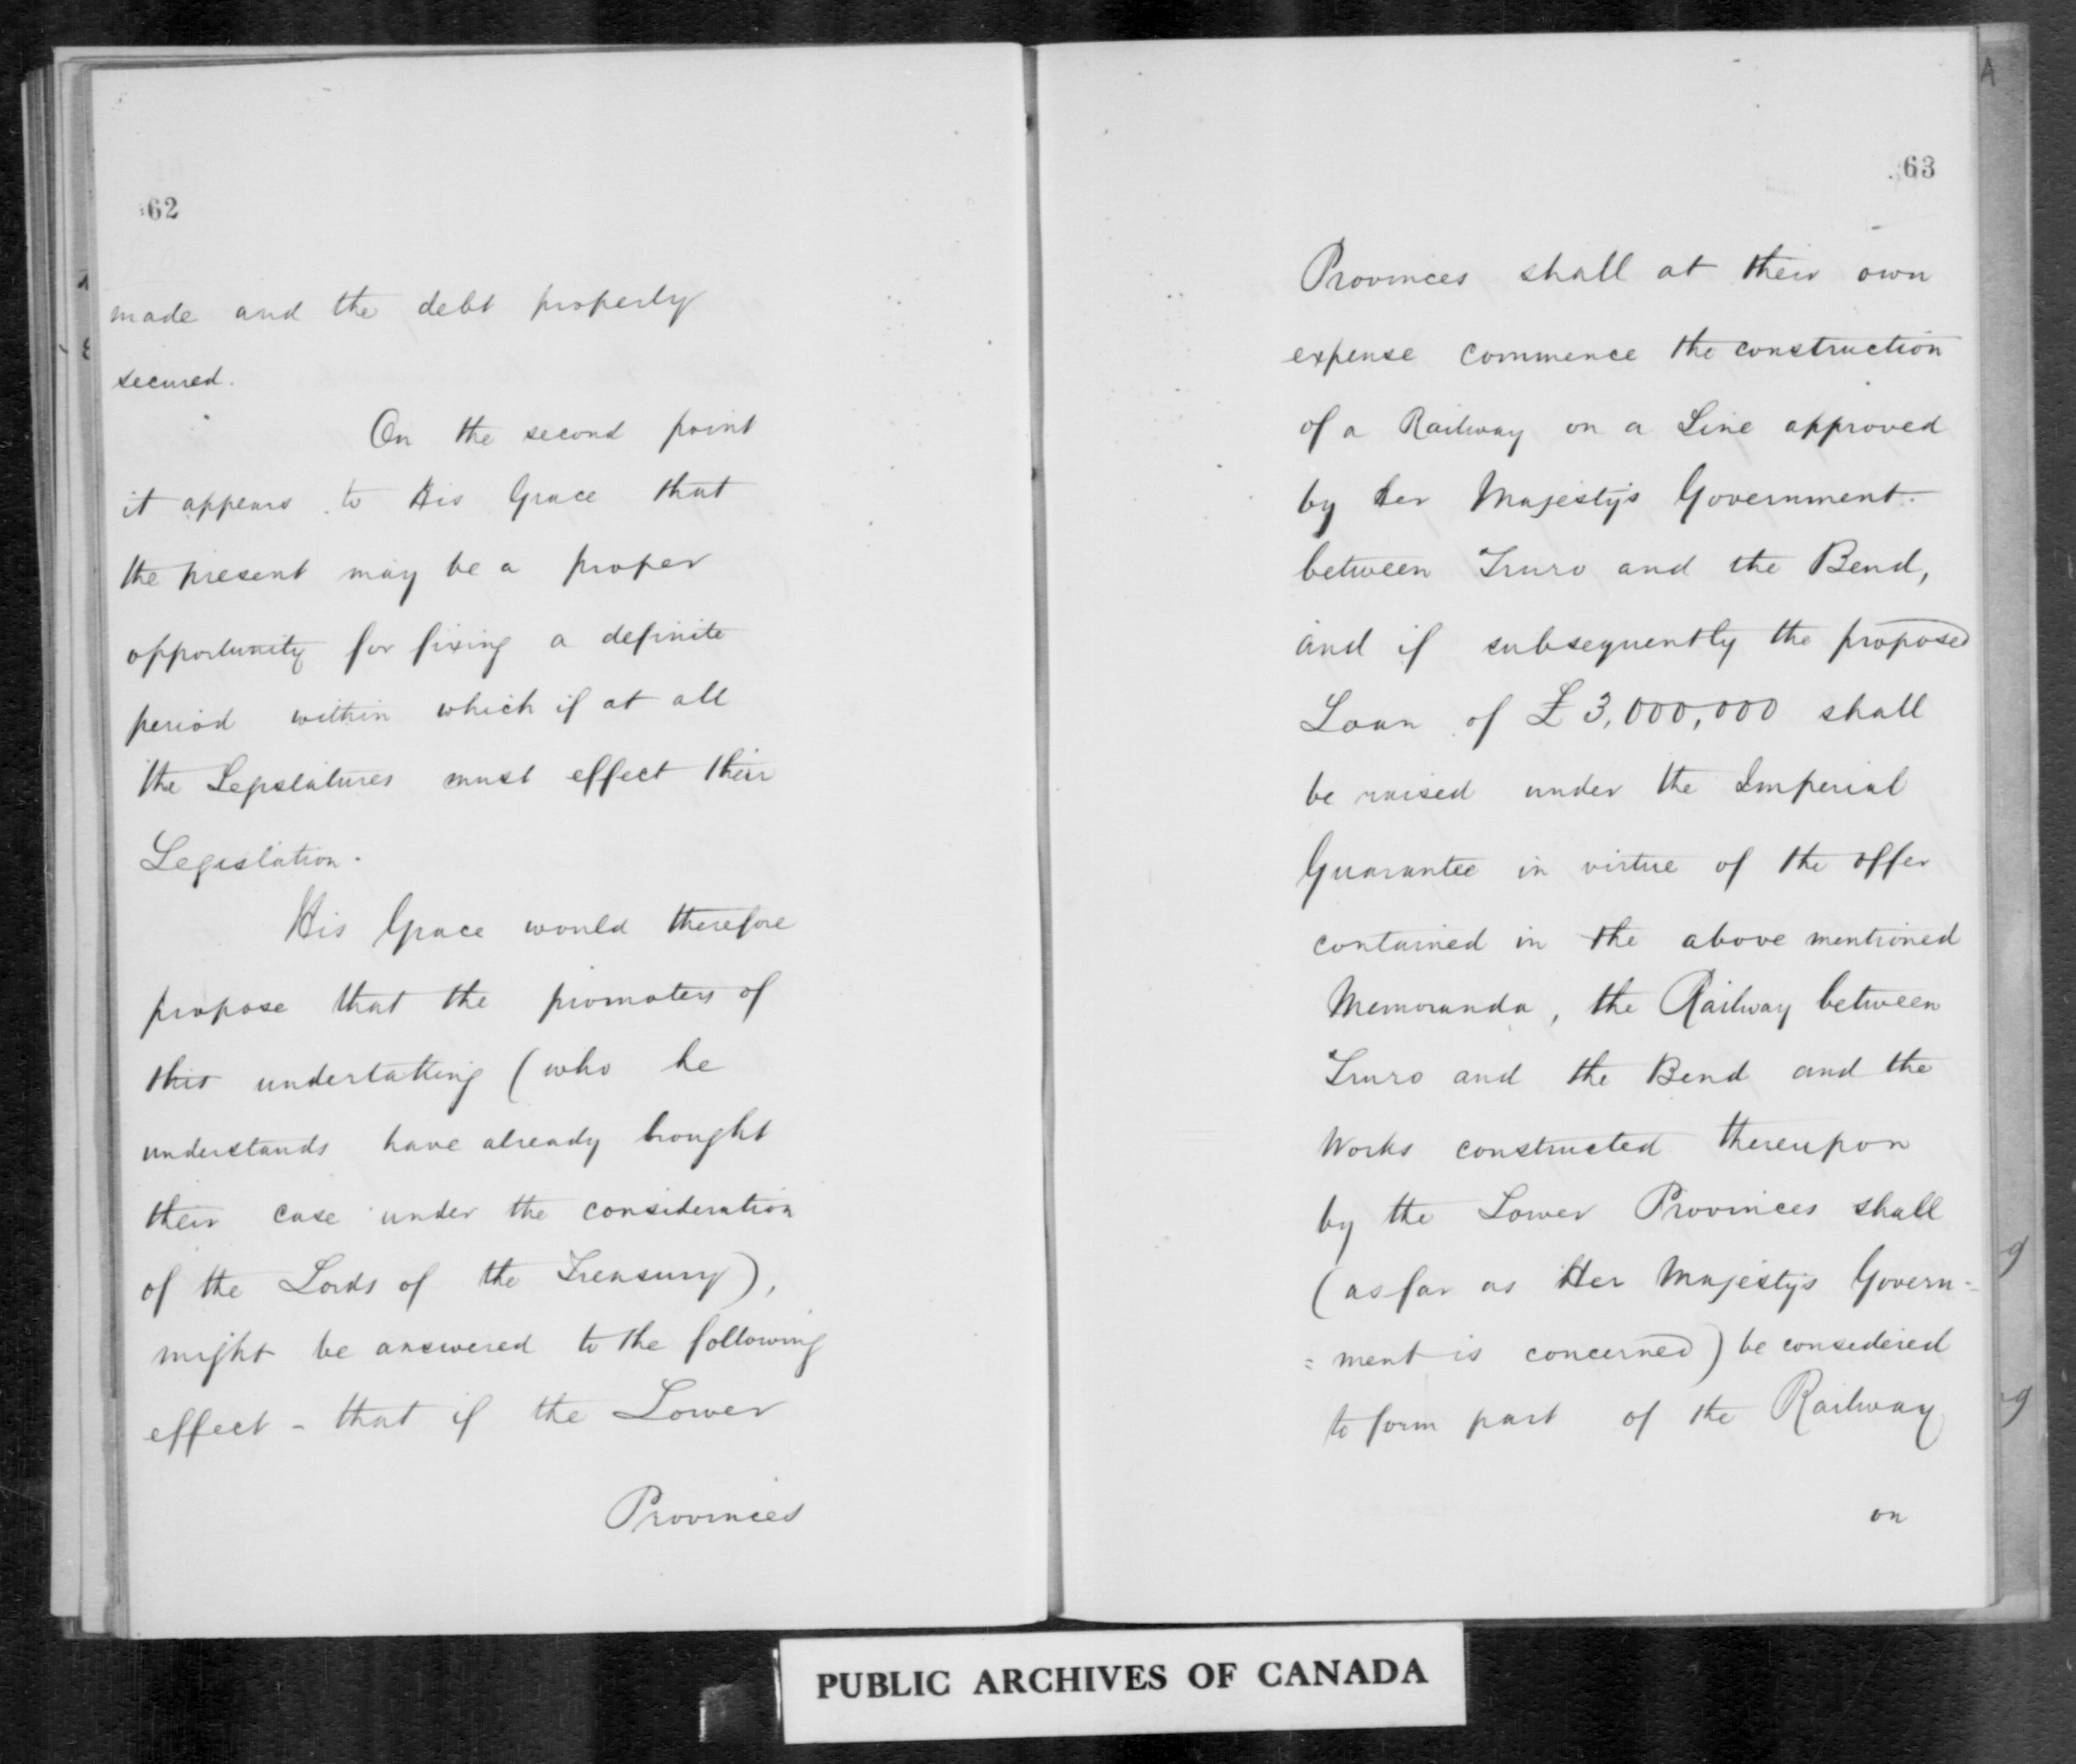 62
made and the debt properly
secured.
On the second point
it appears to His Grace that
the present may be a proper
opportunity for fixing a definite
period within which if at all
the Legislatures must effect their
Legislation.
His Grace would therefore
propose that the promoters of
this undertaking (who he
understands have already brought
their case under the consideration
of the Lords of the Treasury),
might be answered to the following
effect - that if the Lower
Provinces
63
Provinces shall at their own
expense commence the construction
of a Railway on a Line approved
by Her Majesty's Government
between Truro and the Bend,
and if subsequently the proposed
Loan of £3,000,000 shall
be raised under the Imperial
Guarantee in virtue of the offer
contained in the above mentioned
Memoranda, the Railway between
Truro and the Bend and the
Works constructed thereupon
by the Lower Provinces shall
(as far as Her Majesty's Govern=
=ment is concerned) be considered
to form part of the Railway
on
PUBLIC ARCHIVES OF CANADA